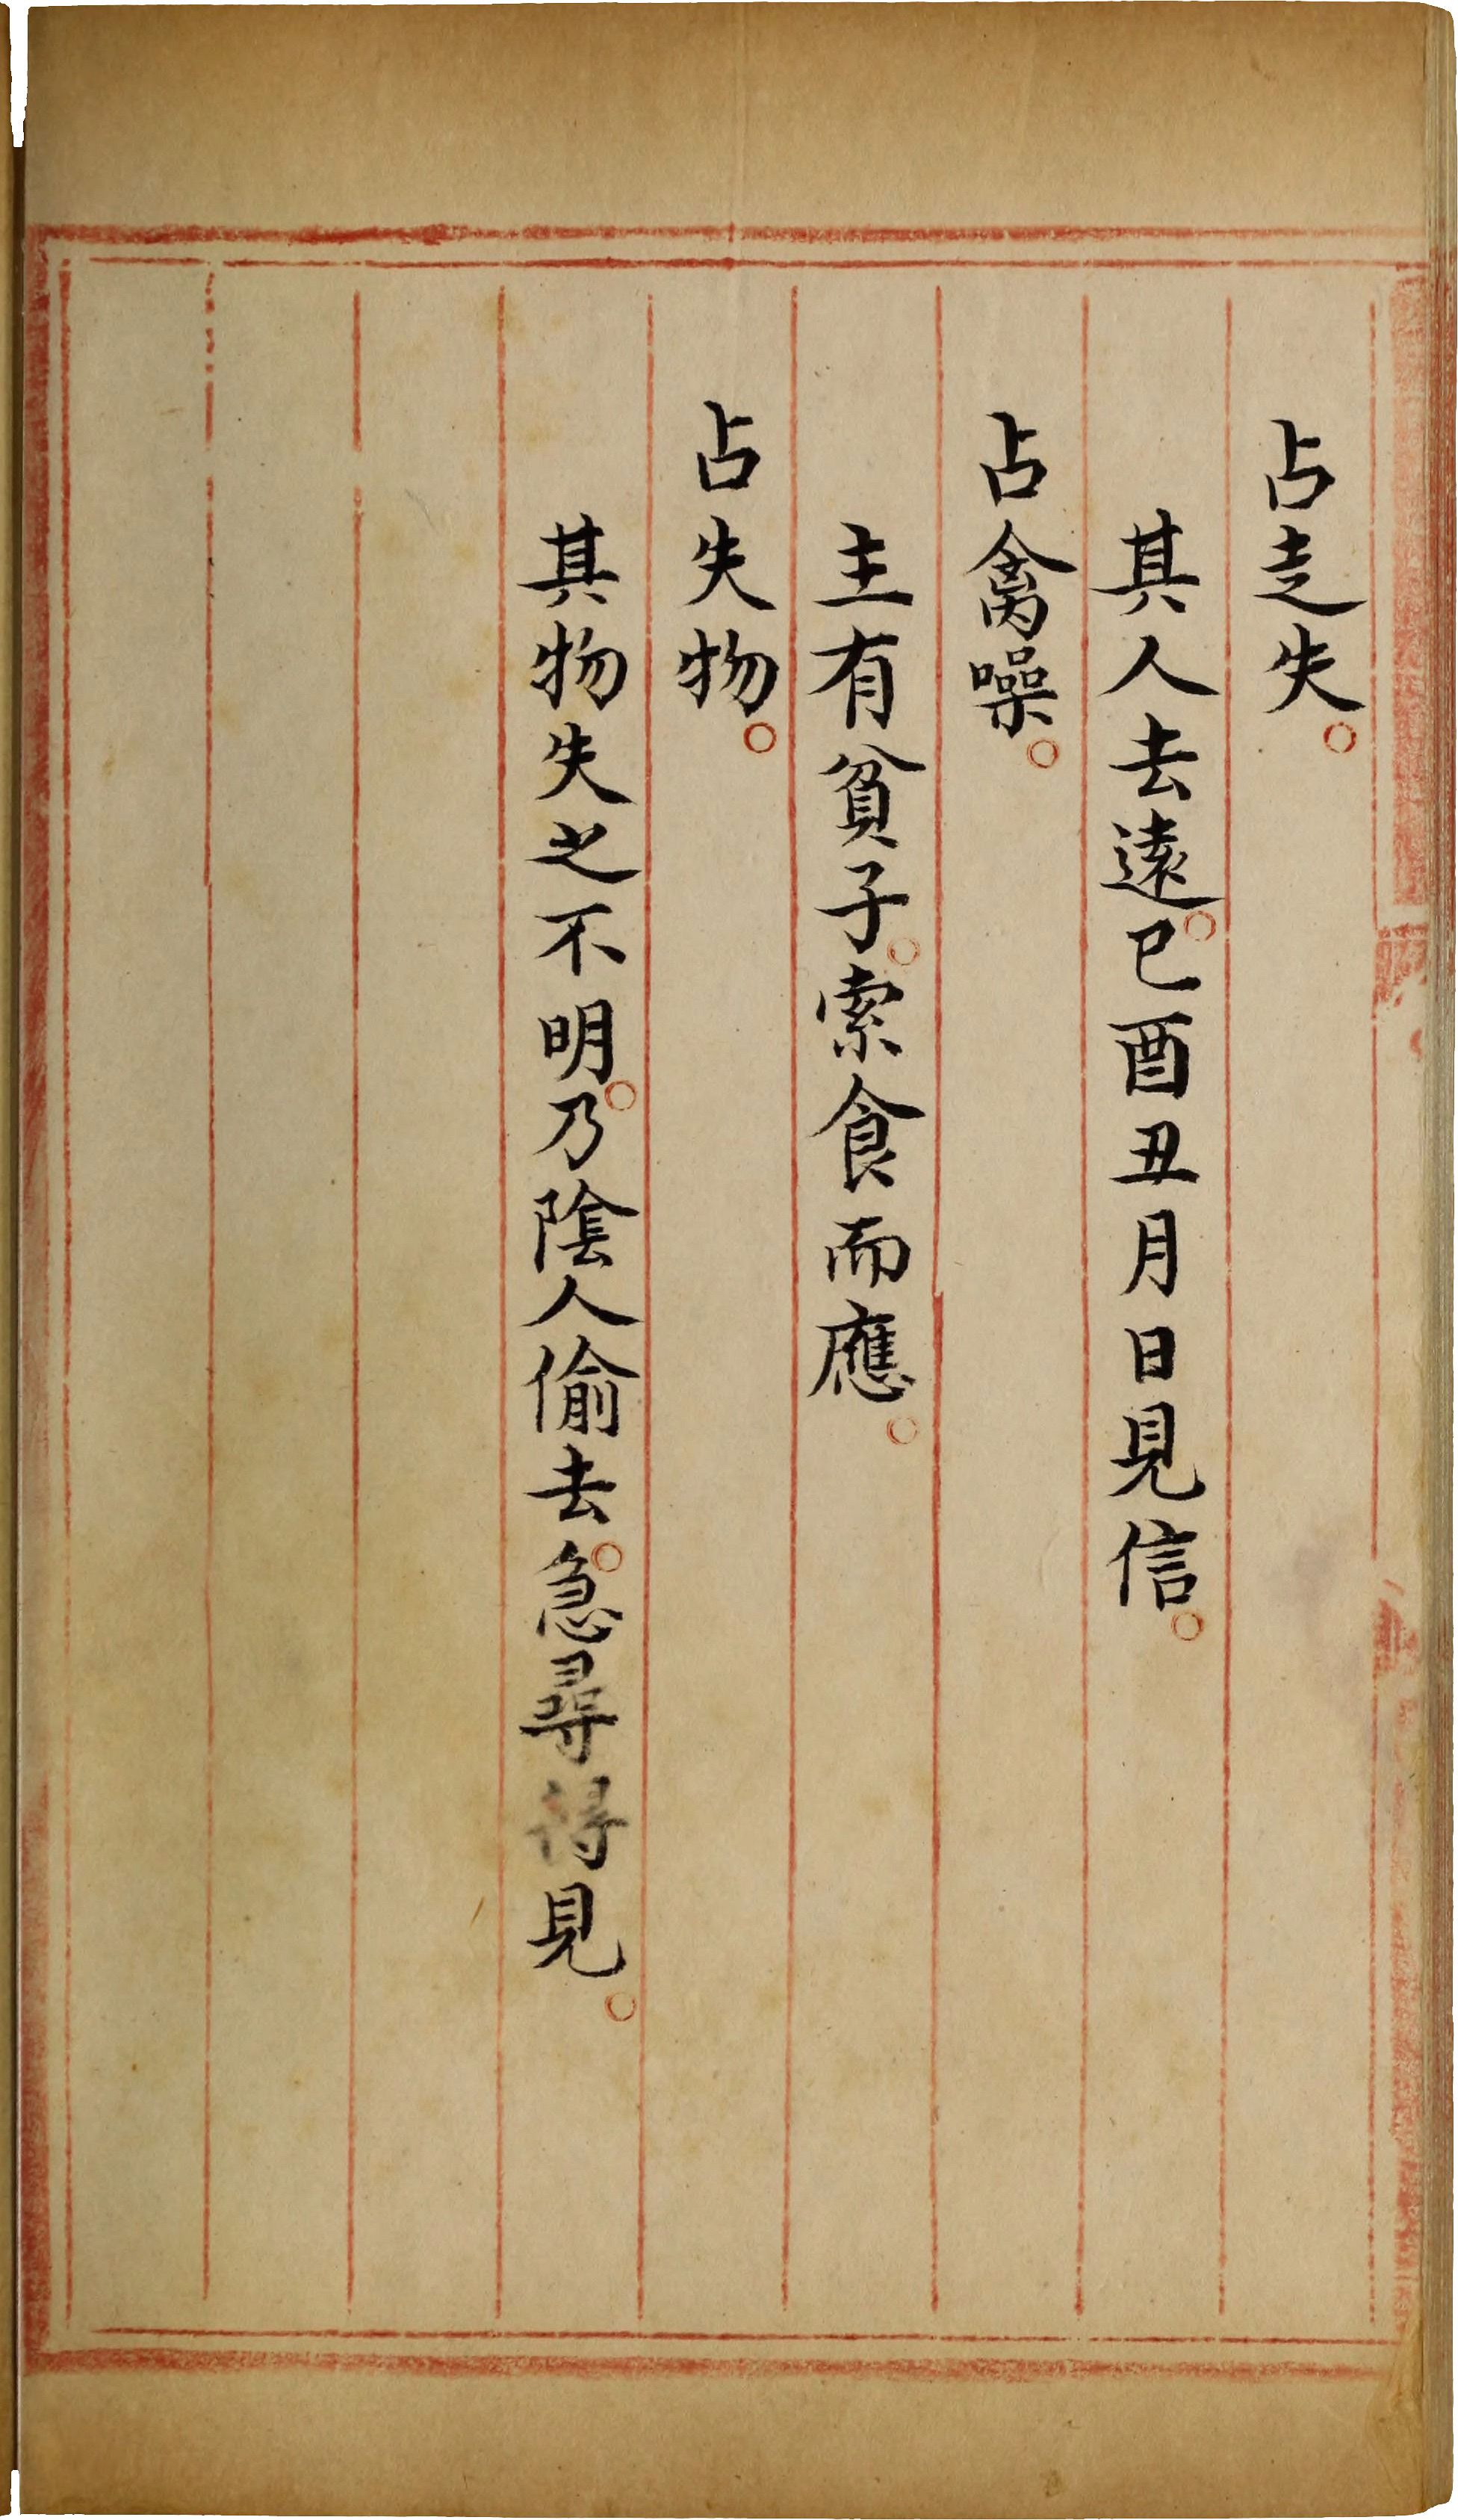 占走失。
其人去遠。巳酉丑月日見信。
占禽噪。
主有貧子。索食而應。
占失物。
其物失之不明。乃陰人偷去。急尋得見。